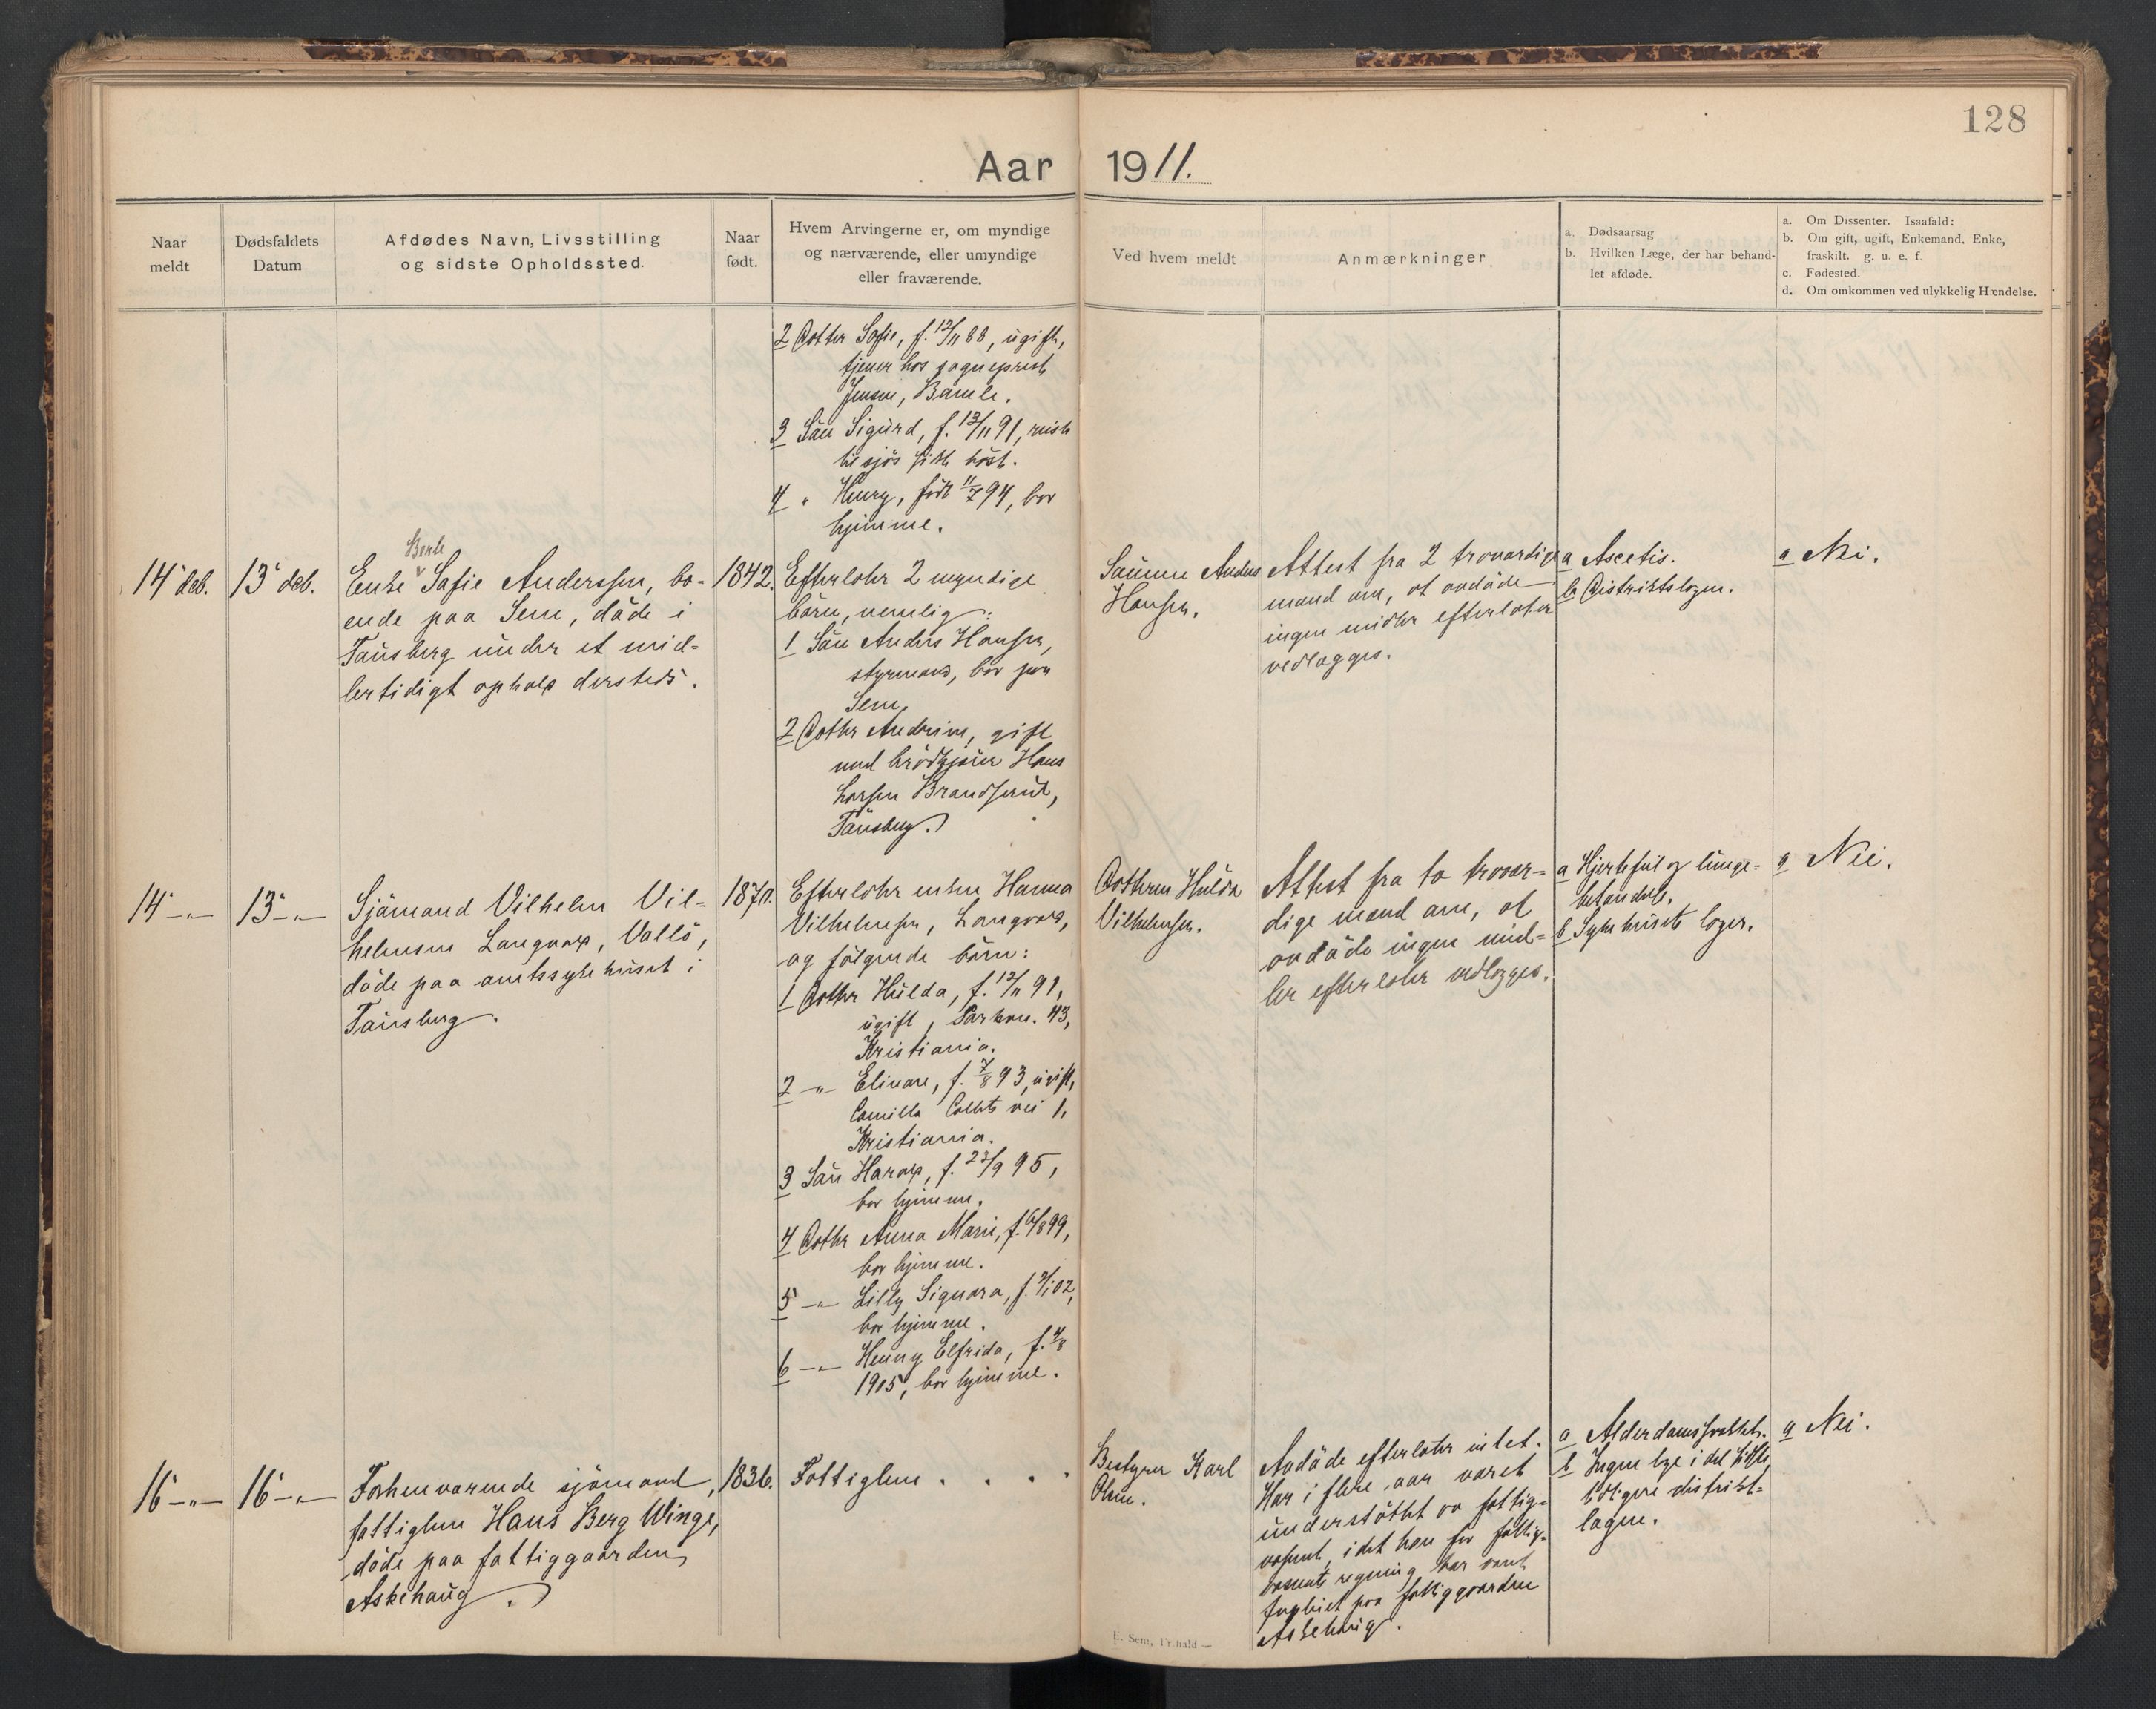 128
Aar 1911.
Naar meldt
Dødsfaldets Datum
Afdødes Navn, Livsstilling og sidste Opholdssted.
Naar født.
Hvem Arvingerne er, om myndige og nærværende, eller umyndige eller fraværende.
Ved hvem meldt
Anmærkninger
a. Dødsaarsag
b. Hvilken Læge, der har behandlet afdøde.
a. Om Dissenter. Isaafald:
b. Om gift, ugift, Enkemand. Enke, fraskilt. g. u. e. f.
c. Fødested.
d. Om omkommen ved ulykkelig Hændelse.
2 Datter Sofie, f. 12/11 88, ugift,
tjener hos sogneprest
Jensen, Bamle.
3 Søn Sigurd, f. 13/11 91, reist
til sjøs sidste høst.
4 " Henry, født 11/7 94, bor
hjemme.
14 deb.
13 deb.
Berte
Enke Sofie Anderssen, bo-
ende paa Sem, døde i
Tønsberg under et mid-
lertidigt ophold dersteds.
1842.
Efterlater 2 myndige
børn, nemlig:
1 Søn Anders Hansen,
styrmand, bor paa
Sem,
2 Datter Andrine, gift
med brødkjører Hans
Larsen Brandserud,
Tønsberg.
Sønnen Anders
Hansen.
Attest fra 2 troværdige
mænd om, at avdøde
ingen midler efterlater
vedlægges.
a Ascetis.
b Distriktslægen.
a Nei.
14 -"-
13 -"-
Sjømand Vilhelm Vil-
helmsen Langvard, Vallø,
døde paa amtssykehuset i
Tønsberg.
1870.
Efterlater enken Hanna
Vilhelmsen, Langvard,
og følgende børn:
1 Datter Hulda, f. 12/11 91,
ugift, Parkvn. 43,
Kristiania.
2 -"- Elinore, f. 7/8 93, ugift,
Camilla Colletts vei 1,
Kristiania.
3 Søn Harald, f. 23/9 95,
bor hjemme.
4 Datter Anna Marie, f. 6/8 99,
bor hjemme.
5 -"- Lilly Signora, f. 2/1 02,
bor hjemme.
6 -"- Henny Elfrida, f. 4/8
1905, bor hjemme.
Datteren Hulda
Vilhelmsen.
Attest fra to trovær-
dige mænd om, at
avdøde ingen mid-
ler efterlater vedlægges.
a Hjertefeil og lunge-
betændelse.
b Sykehusets læger.
a Nei.
16 -"-
16 -"-
Forhenværende sjømand,
fattiglem Hans Berg Winge,
døde paa fattiggaarden
Askehaug.
1836.
Fattiglem . . . .
Bestyrer Karl
Olsen.
Avdøde efterlater intet.
Har i flere aar været
understøttet av fattig-
væsenet, idet han for fattig-
væsenets regning har været
forpleiet paa fattiggaarden
Askehaug.
a Alderdomssvakhet.
b Ingen læge i det sidste,
tidligere distrikts-
lægen.
a Nei.
E. Sem, Fr.hald —